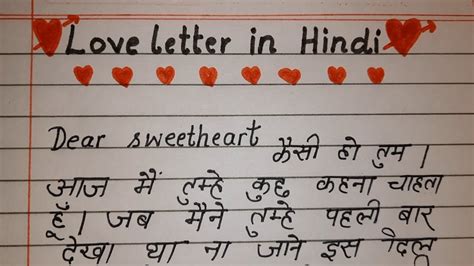 Love letter in Hindi
Dear sweetheart कैसी हो तुम ।
आज मैं तुम्हे कुछ कहना चाहता
हूँ । जब मैने तुम्हे पहली बार
देखा था ना जाने इस दिल